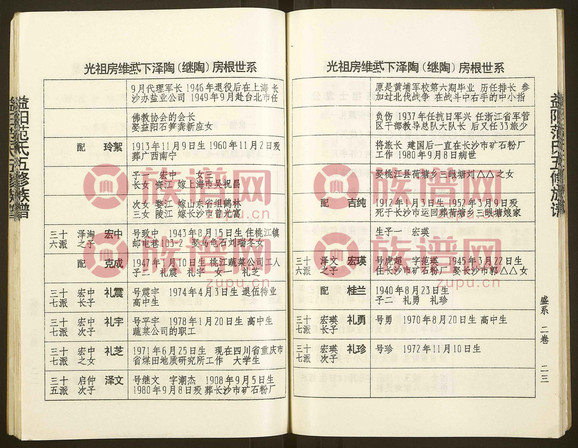 益阳范氏五修族谱
光祖房维武下泽陶(继陶)房根世系
9月代理军长 1946年退役后在上海 长
沙办盐业公司 1949年9月赴台北市任
佛教协会的会长
娶益阳石笋龚新应女
配 玲絮 1913年11月9日生 1960年11月2日殁
葬广西南宁
子一 宏中 女三
长女 婺江 嫁上海市吴祝昌
次女 嫁山东省组鹤林
三女 陵江 嫁长沙市曾光富
三十六派 泽淘之子 宏中 号致中 1943年8月15日生 住桃江镇
娶乌屯石刘瑞圣女
配 克成 1947年1月10日生 桃江蔬菜公司工人
子二 礼震 礼字 女一 礼芝
三十七派 宏中长子 礼震 号震宇 1974年4月3日生 退伍待业
高中生
三十七派 宏中次子 礼宇 号平宇 1978年1月20日生 高中生
蔬菜公司的职工
三十七派 宏中之女 礼芝 1971年6月25日生 现在四川省重庆市
省煤田地质研究所工作 大学生
三十五派 启仲次子 泽文 号继文 字潮杰 1908年9月5日生
1980年9月8日殁葬长沙市矿石粉厂
光祖房维武下泽陶(继陶)房根世系
原是黄埔军校第六期毕业 历任排长 参
加过北伐战争 在战斗中右手的中小指
负伤 1937年任抗日军兴 任浙江省军管
区干部教导总队大队长 后又任33旅少
将旅长 建国后一直在长沙市矿石粉厂
工作 1980年9月8日病世
娶桃江县荷塘乡三眼塘刘△△之女
配 吉纯 1912年1月3日生 1952年3月9日殁
死于长沙市运回葬荷塘乡三眼塘娘家
生子一 宏瑛
三十六派 泽文之子 宏瑛 号虎彪 字苑瑛 1945年3月22日生
住长沙市矿石粉厂 娶长沙市郭△△女
配 桂兰 1940年8月23日生
子二 礼勇 礼珍
三十七派 宏瑛长子 礼勇 号勇 1970年8月20日生 高中生
三十七派 宏瑛次子 礼珍 号珍 1972年11月10日生
益阳范氏五修族谱
盛系 二卷 二三
族谱网
zupu.cn